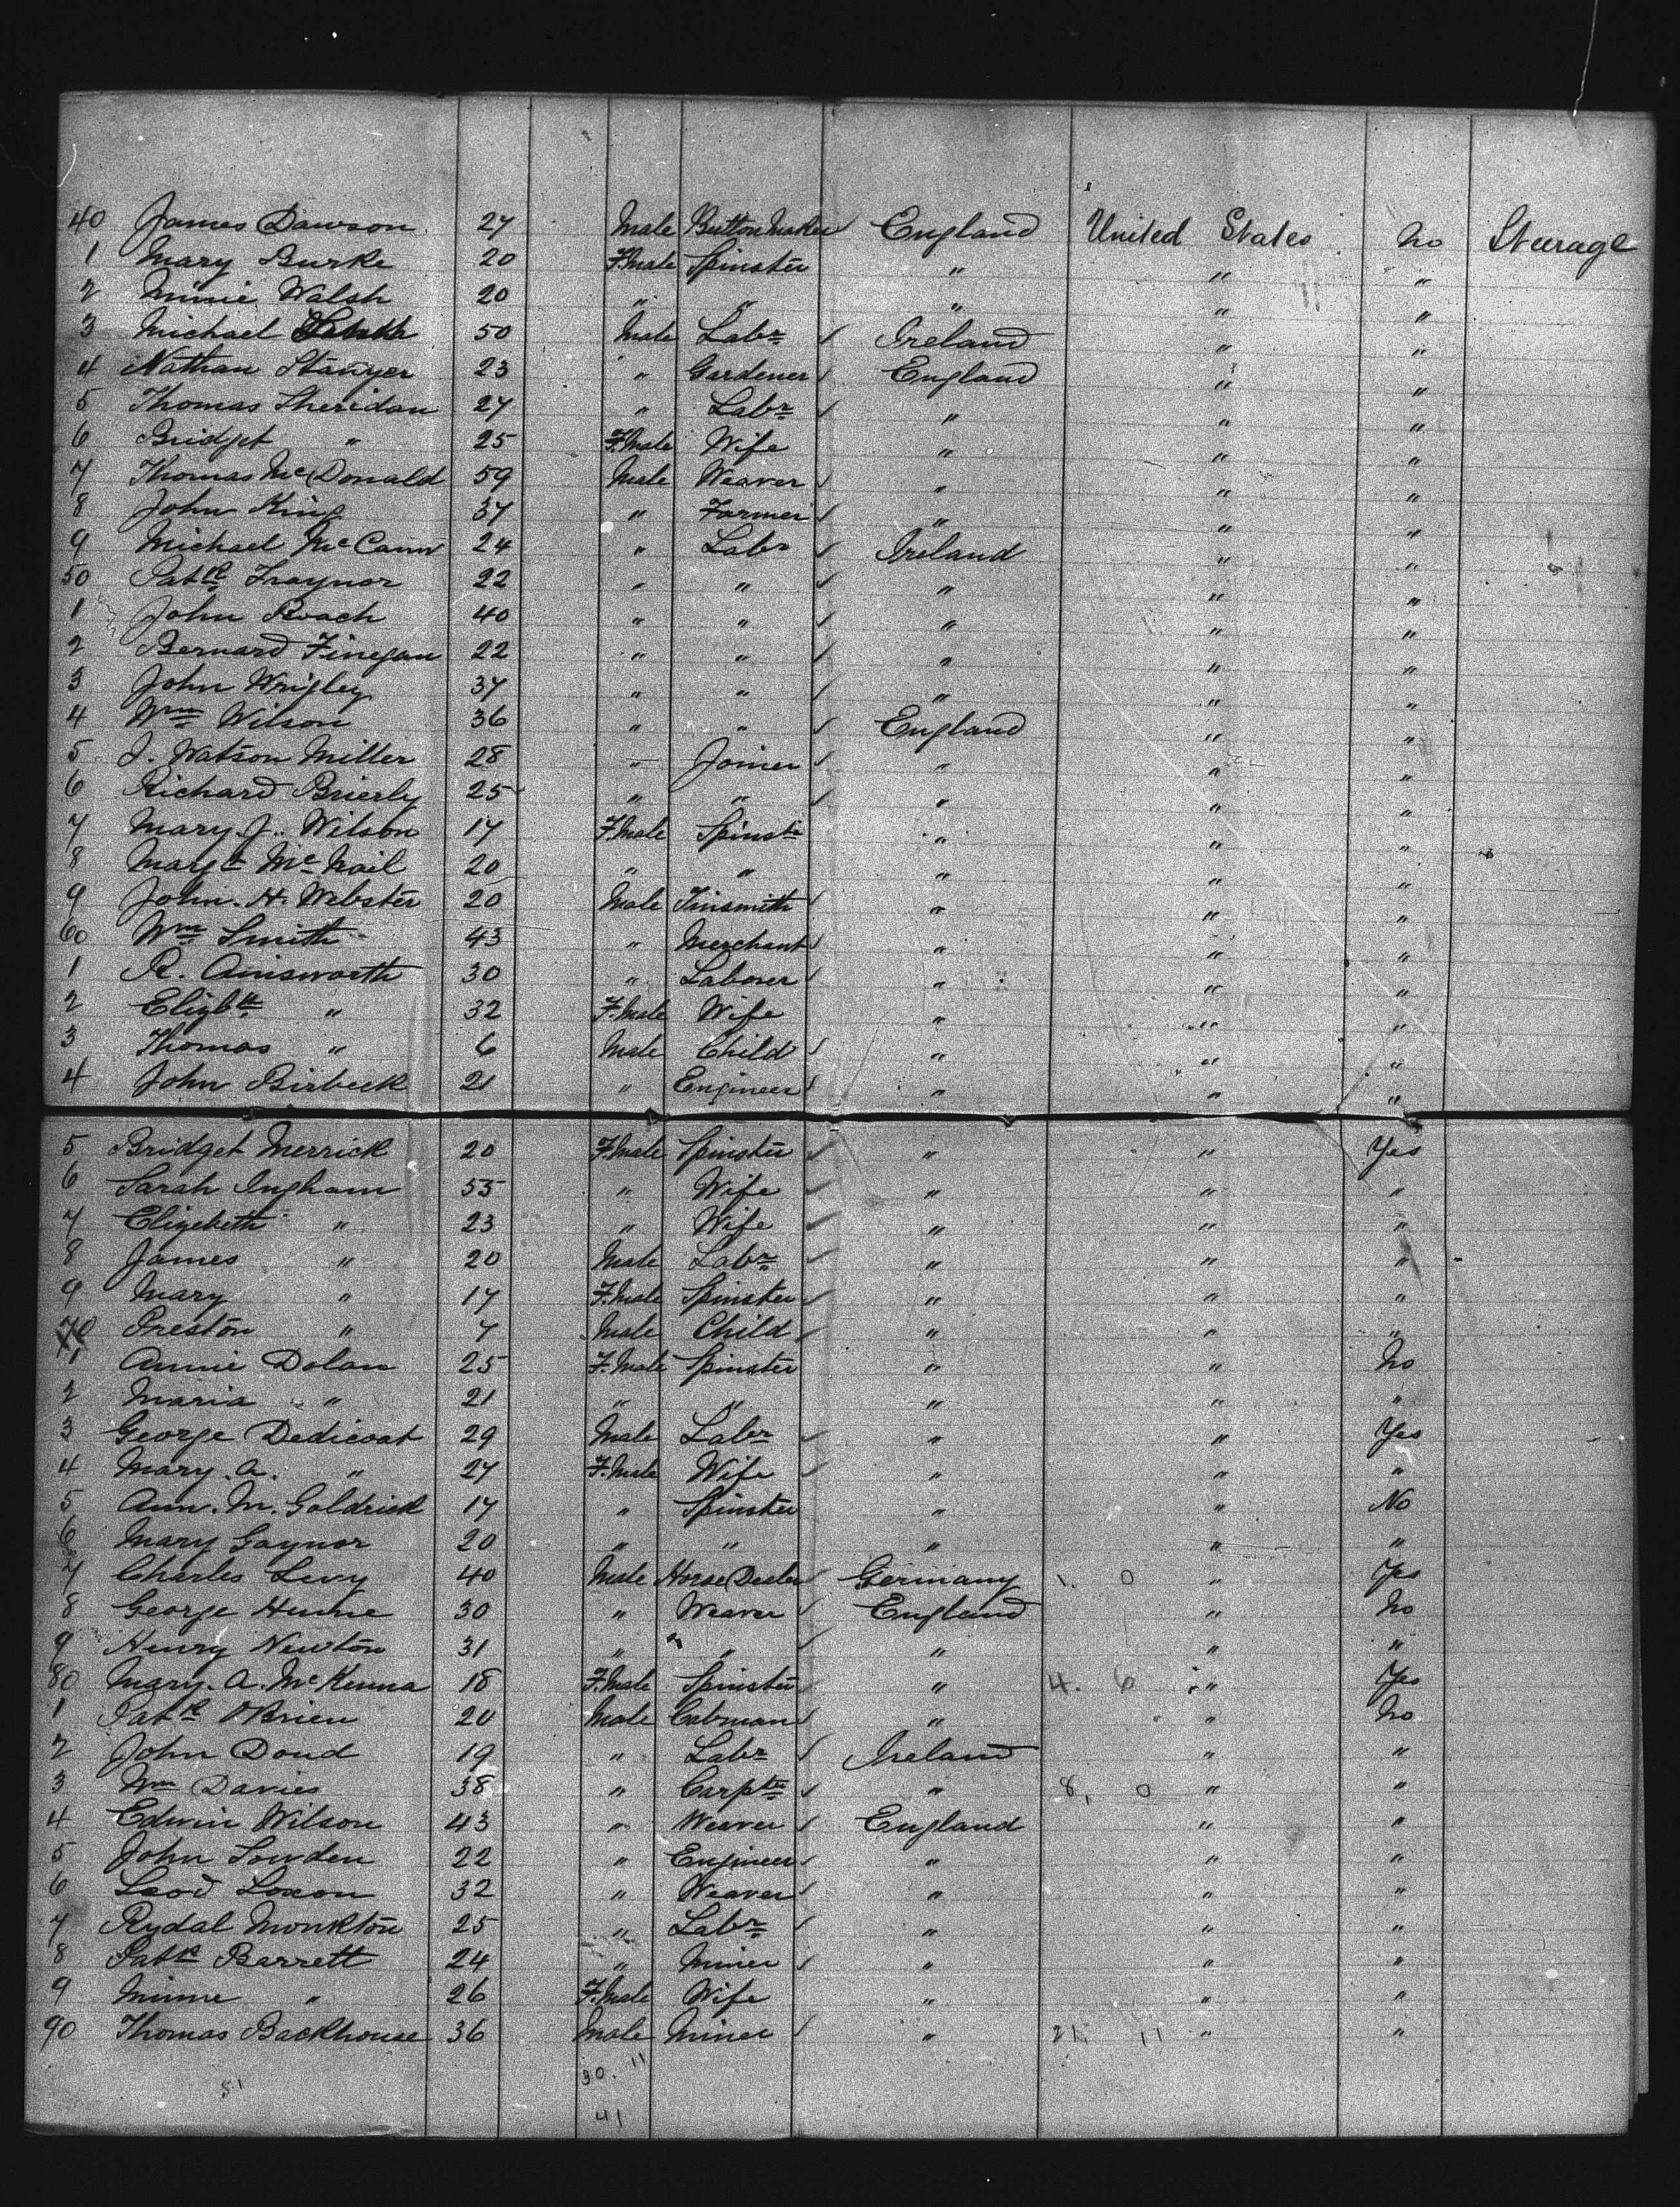 40 James Dawson 27 Male Button Maker England United States No Steerage
1 Mary Burke 20 F.Male Spinster " " "
2 Minie Walsh 20 " " " " "
3 Michael 50 Male Labr Ireland " "
4 Nathan Stanyer 23 " Gardener England " "
5 Thomas Sheridan 27 " Labr " " "
6 Bridget " 25 F.Male Wife " " "
7 Thomas McDonald 59 Male Weaver " " "
8 John King 37 " Farmer " " "
9 Michael McCann 24 " Labr Ireland " "
50 Patk Traynor 22 " " " " "
1 John Roach 40 " " " " "
2 Bernard Finegan 22 " " " " "
3 John Wrigley 37 " " " " "
4 Wm Wilson 36 " " England " "
5 J. Watson Miller 28 " Joiner " " "
6 Richard Brierly 25 " " " " "
7 Mary. J. Wilson 17 F.Male Spinstr " " "
8 Margt McNail 20 " " " " "
9 John. H. Webster 20 Male Tinsmith " " "
60 Wm Smith 43 " Merchant " " "
1 R. Ainsworth 30 " Laborer " " "
2 Elizbth " 32 F.Male Wife " " "
3 Thomas " 6 Male Child " " "
4 John Birbeck 21 " Engineer " " "
5 Bridget Merrick 20 F.Male Spinster " " Yes
6 Sarah Ingham 55 " Wife " " "
7 Elizebeth " 23 " Wife " " "
8 James " 20 Male Labr " " "
9 Mary " 17 F.Male Spinster " " "
70 Preston " 7 Male Child " " "
1 Annie Dolan 25 F.Male Spinster " " No
2 Maria " 21 " " " " "
3 George Dedicoat 29 Male Labr " " Yes
4 Mary. A. " 27 F.Male Wife " " "
5 Ann. M. Goldrick 17 " Spinster " " No
6 Mary Gaynor 20 " " " " "
7 Charles Levy 40 Male Horse Dealer Germany 1. 0 " Yes
8 George Hume 30 " Weaver England " No
9 Henry Newton 31 " " " " "
80 Mary. A. McKenna 18 F.Male Spinster " 4. 6 " Yes
1 Patk O'Brien 20 Male Cabman " " No
2 John Doud 19 " Labr Ireland " "
3 Wm Davies 38 " Carptr " 8, 0 " "
4 Edwin Wilson 43 " Weaver England " "
5 John Lowden 22 " Engineer " " "
6 Loxon 32 " Weaver " " "
7 Rydal Monkton 25 " Labr " " "
8 Patk Barrett 24 " Miner " " "
9 Minne " 26 F.Male Wife " " "
90 Thomas Backhouse 36 Male Miner " 21, 11 " "
30. 11
51
41